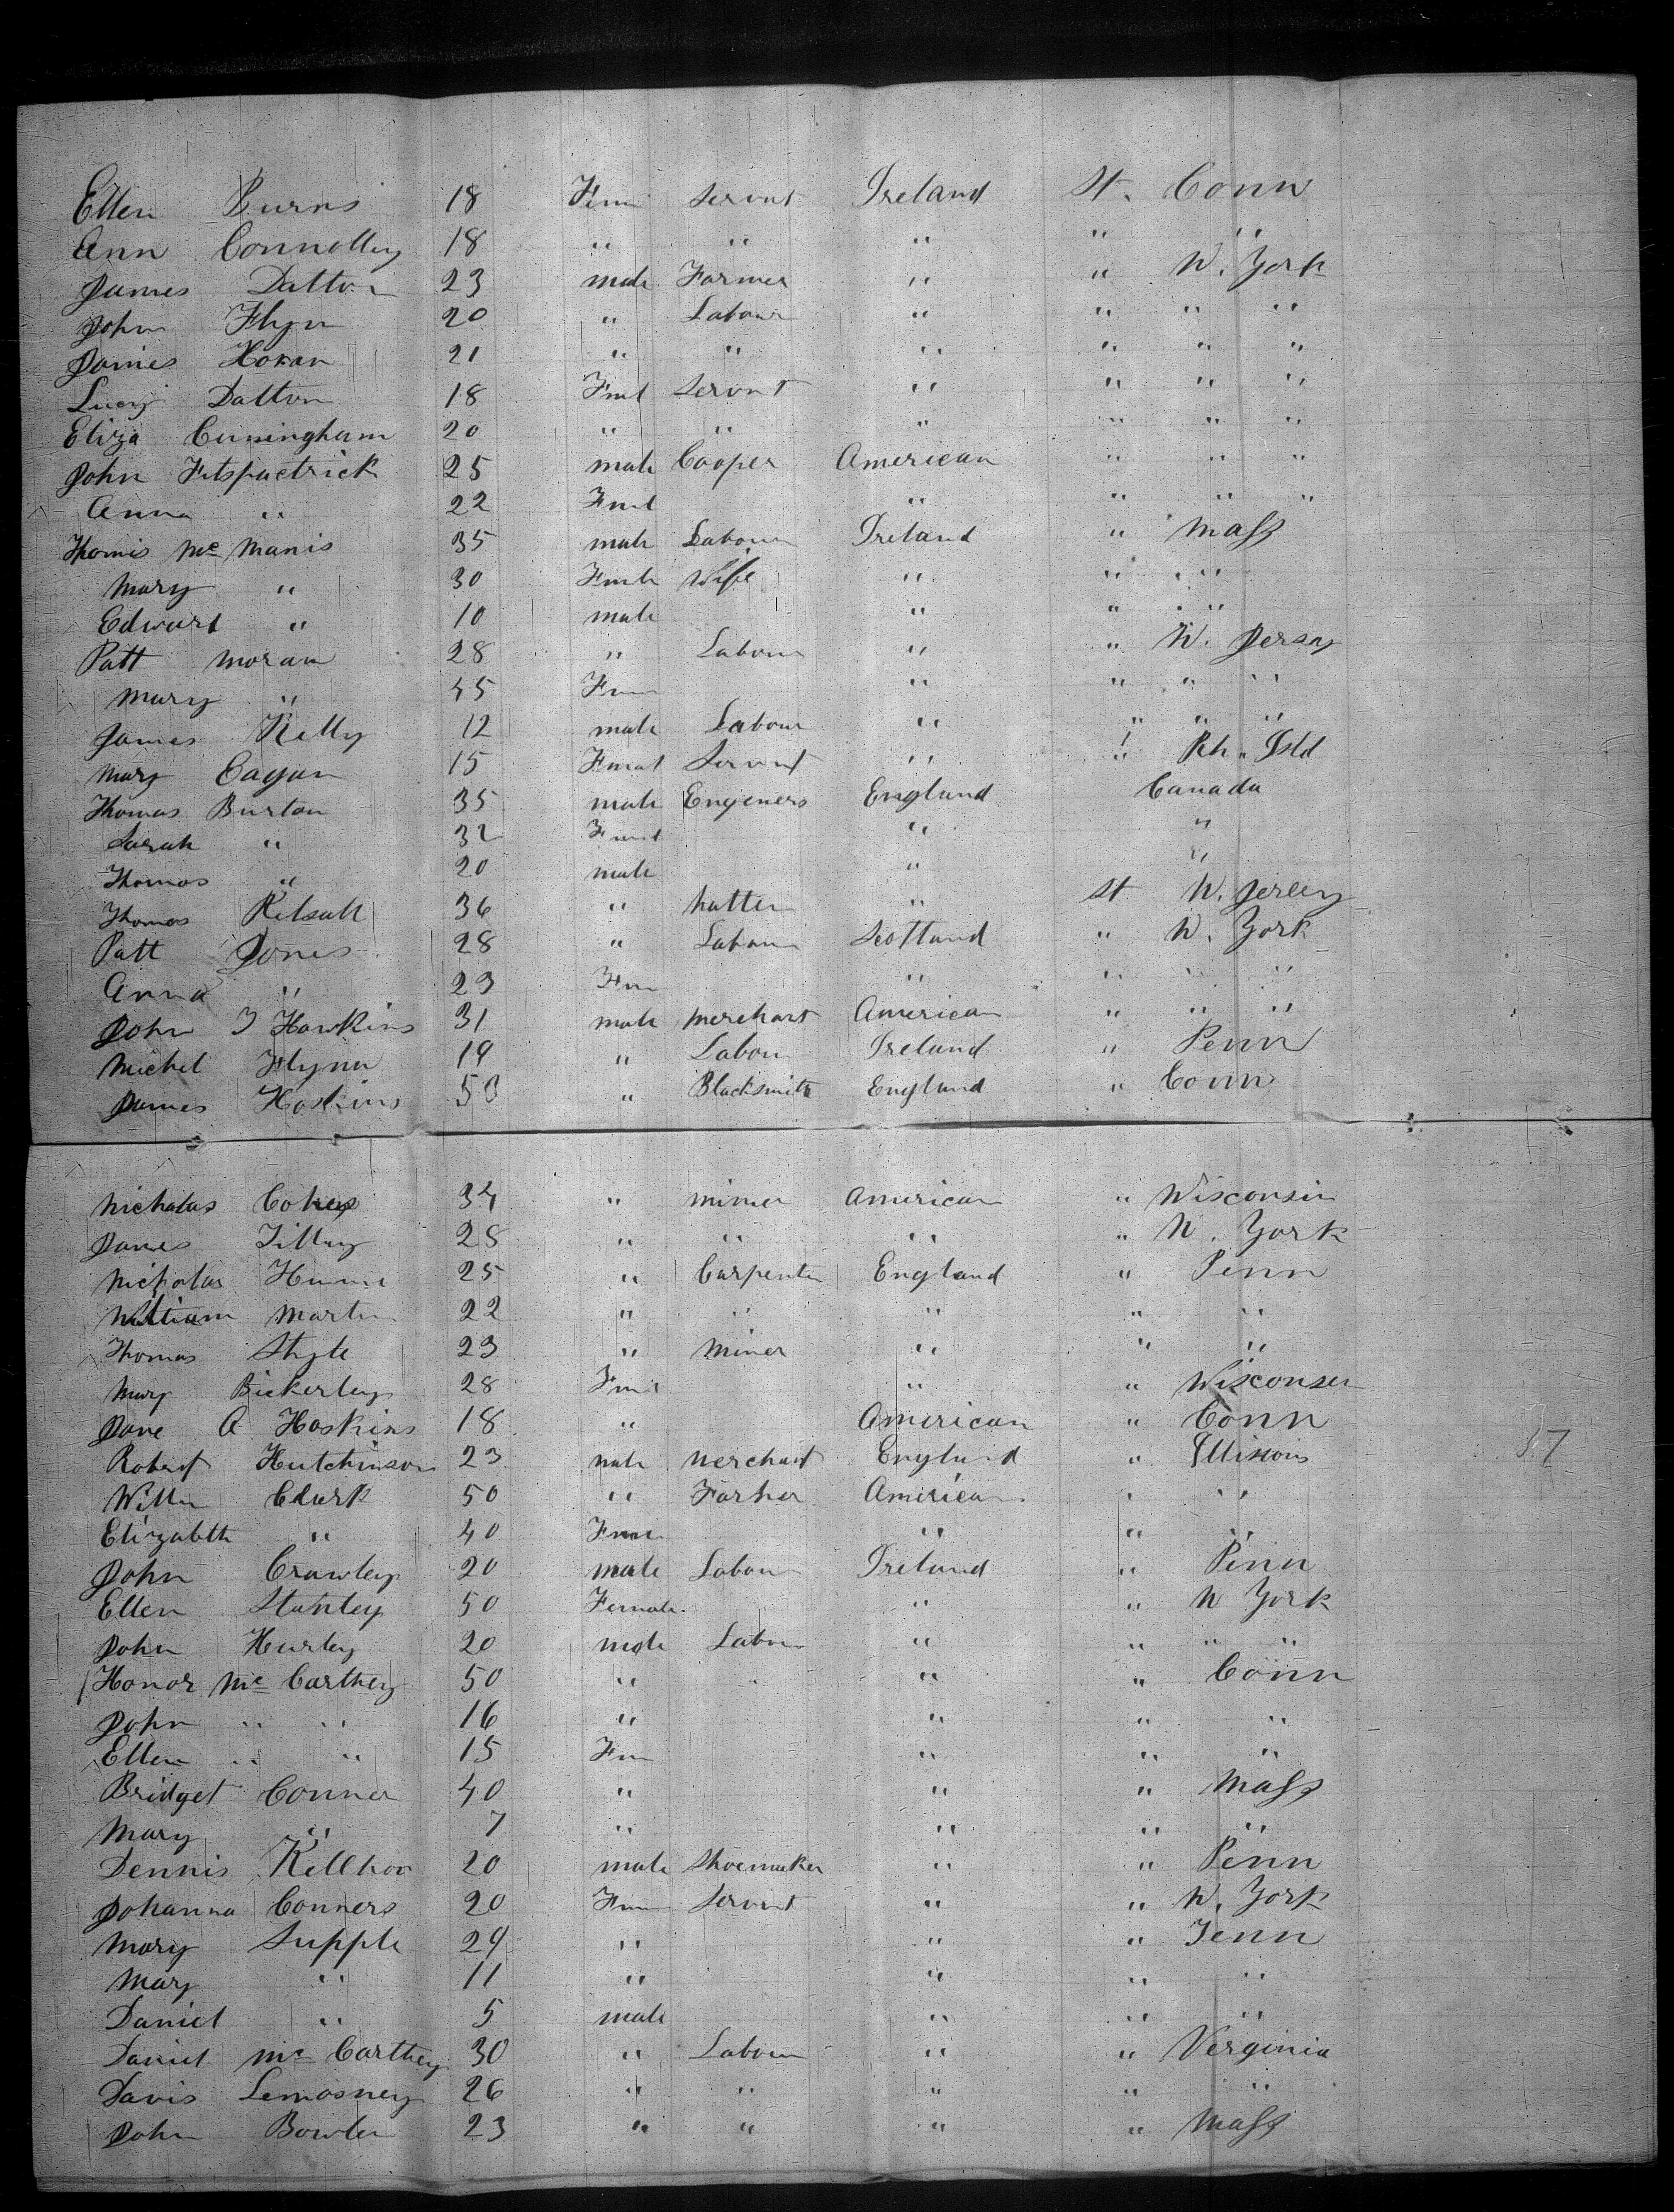 Ellen Burns 18 Fem Servnt Ireland St. Conn
Ann Connolley 18 " " " " "
James Dalton 23 male Farmer " " N. York
John Flyn 20 " Labour " " " "
James Horan 21 " " " " " "
Lucy Dalton 18 Fml Servnt " " " "
Eliza Cuningham 20 " " " " " "
John Fitspactrick 25 male Cooper American " " "
Anna " 22 Fml " " " "
Thomis Mc Manis 35 male Labour Ireland " Mass
Mary " 30 Fmle Wife " " "
Edward " 10 male " " "
Patt Moran 28 " Labour " " N. Jersay
Mary " 45 Fem " " " "
James Kelly 12 male Labour " " " "
Mary Eagan 15 Fmal Servnt " " Rh. Isld
Thomas Burton 35 male Engeners England Canada
Sarah " 32 Fml " "
Thomas " 20 male " "
Thomas Kelsall 36 " hatter " St N. Jersey
Patt Jones 28 " Labour Scotland " N. York
Anna " 23 Fm " " " "
John J Hawkins 31 male Merchart American " " "
Michel Flynn 19 " Labour Ireland " Penn
James Hoskins 50 " Blacksmith England " Conn
Nicholas 34 " miner American " Wisconsin
James Tilley 28 " " " " N. York
Nicholas 25 " Carpenter England " Penn
William Martin 22 " " " " "
Thomas Style 23 " Miner " " "
Mary Bickerley 28 Fml " " Wisconsen
Jane A Hoskins 18 " American " Conn
Robert Hutchinson 23 male Merchant England " Illinois
Willm Clark 50 " Farmer American " "
Elizabeth " 40 Fem " " "
John Crawley 20 male Labour Ireland " Penn
Ellen Stanley 50 Female " " N York
John Hurley 20 male Labour " " " "
Honor Mc Carthey 50 " " " Conn
John " " 16 " " " "
Ellen " " 15 Fm " " "
Bridget Conner 40 " " " Mass
Mary " 7 " " " "
Dennis Kellhor 20 male Shoemaker " " Penn
Johanna Conners 20 Fm Servnt " " N. York
Mary Supple 29 " " " Tenn
Mary " 11 " " " "
Daniel " 5 male " " "
Daniel Mc Carthey 30 " Labour " " Verginia
Davis Lemosney 26 " " " " "
John Bowlen 23 " " " " Mass